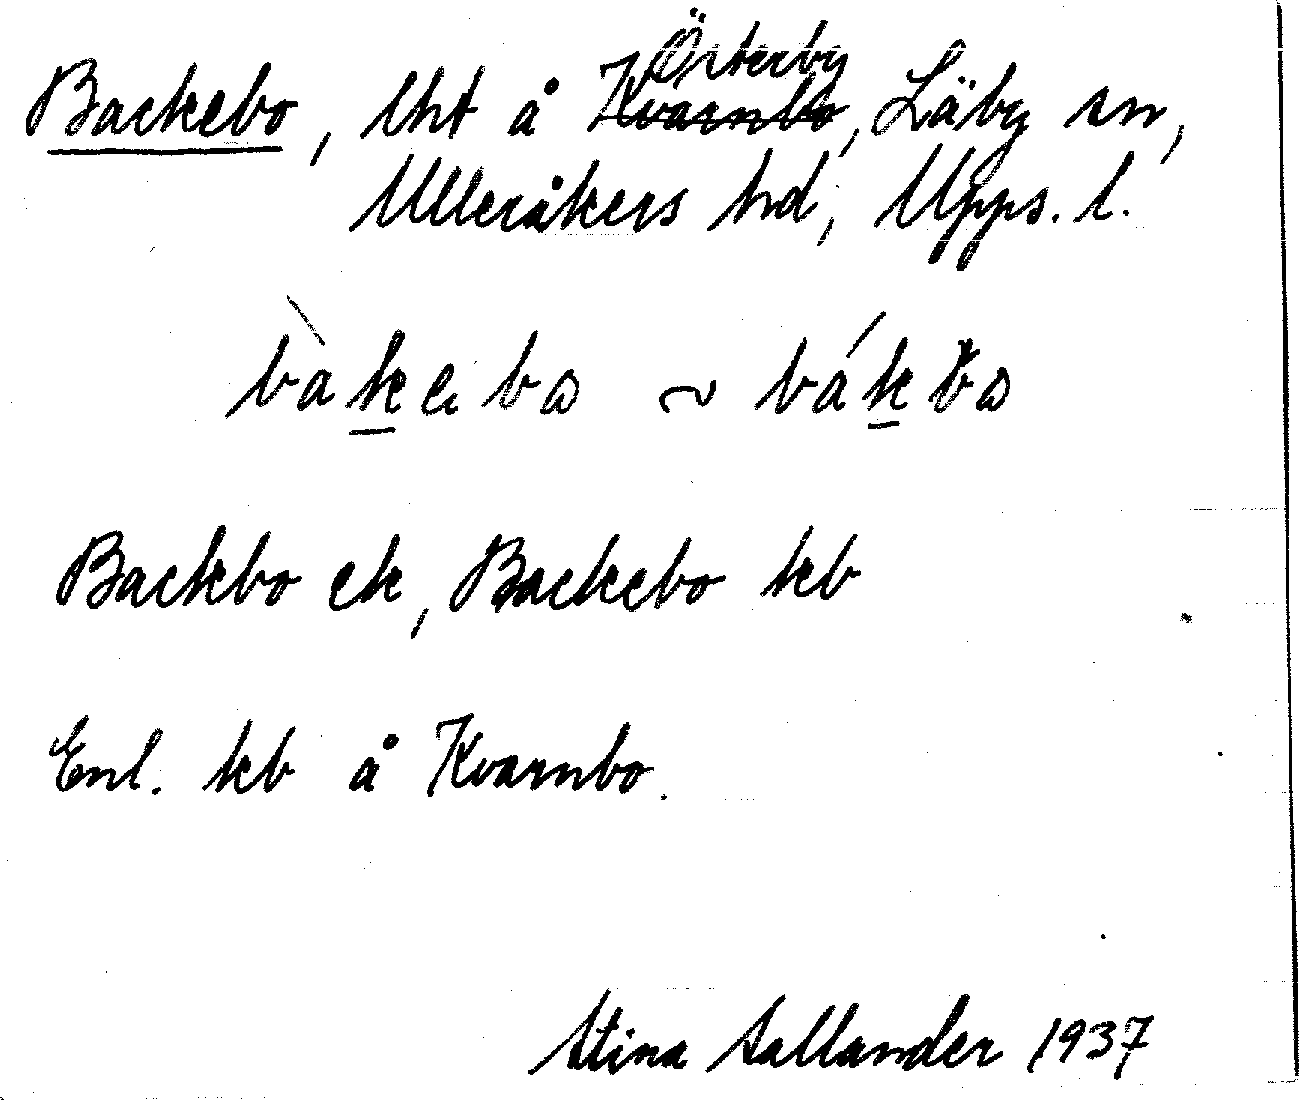 Backebo, lht å Österby, Läby sn,
Ulleråkers hd, Upps. l.
bàkebo ~ bákbo
Backbo ek, Backebo kb
Enl. kb å Kvarnbo.
Stina Sallander 1937